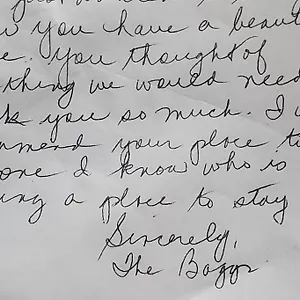 you have a beaut
e. You thought of
thing we would need
k you so much. I w
mmend your place to
one I know who is
ing a place to stay
Sincerely,
The Baggs